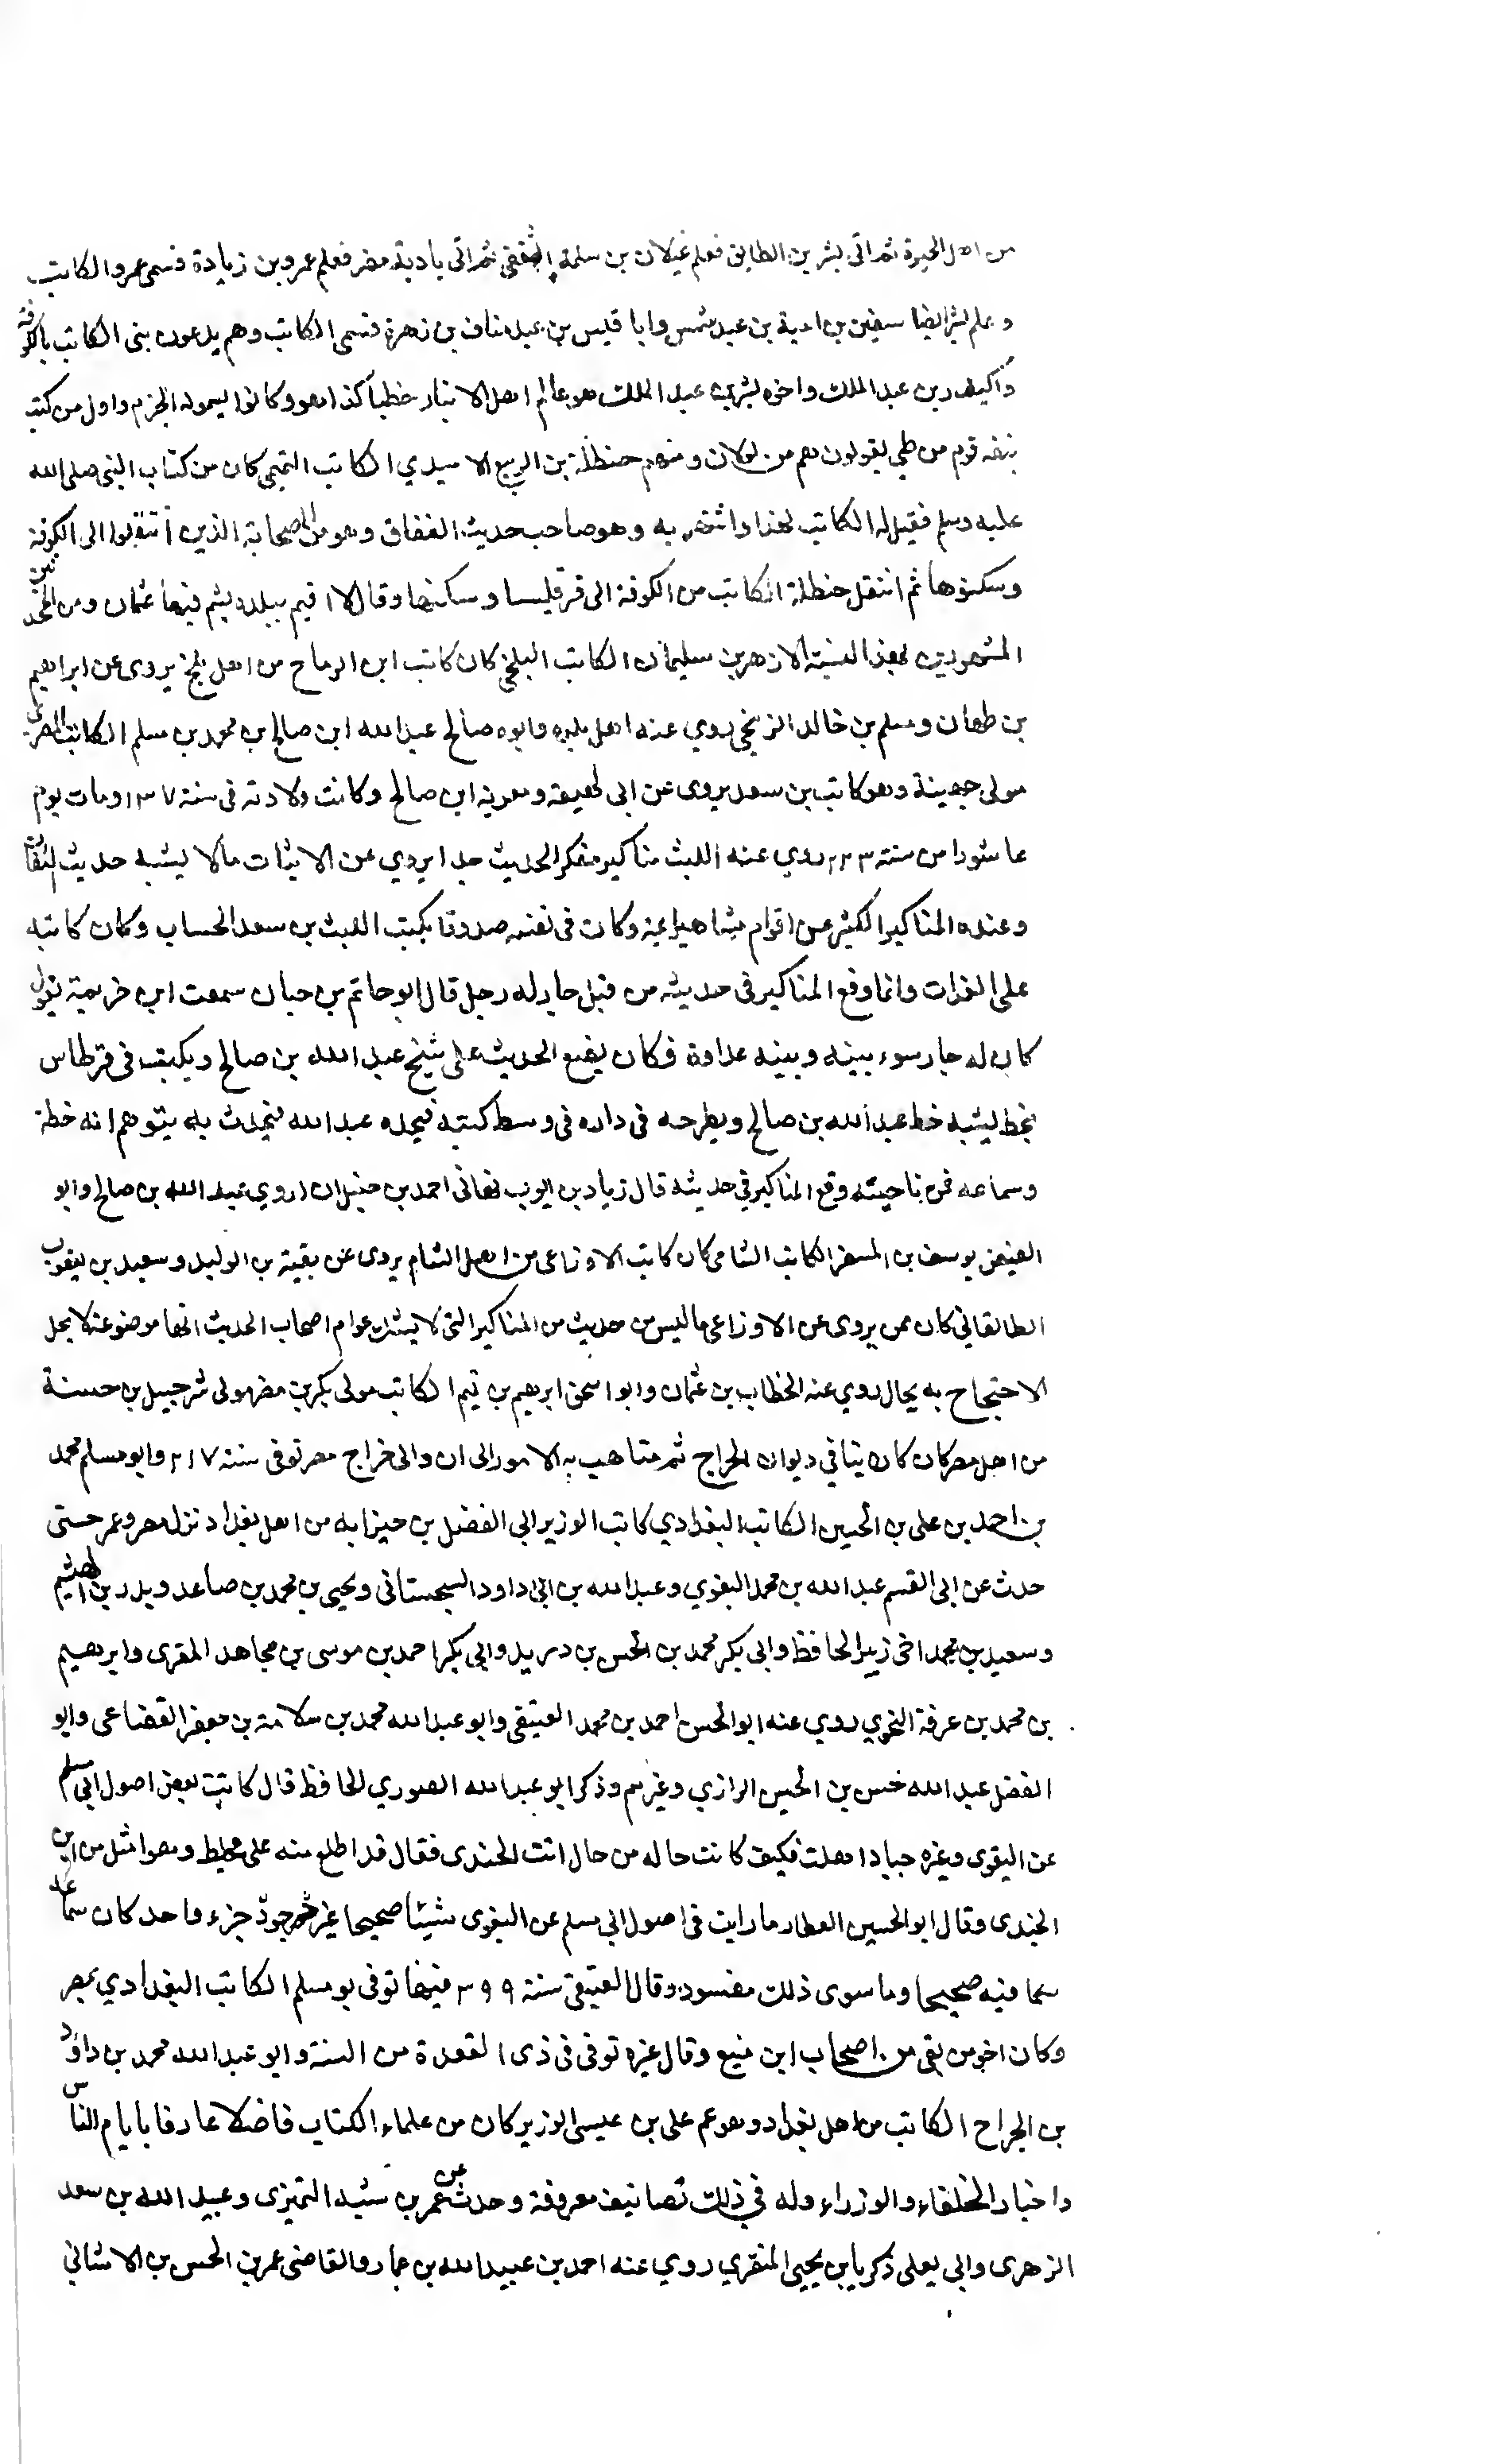 من اهل الحيرة ثم اتى بشر بن الطايق فعلم غيلان بن سلمة الثقفي ثم اتى بادية مضر فعلم عمرو بن زيادة فسمى عمرو الكاتب
وعلم بشر ايضا سفين بن امية بن عبد شمس وابا قيس بن عبد مناف بن زهرة فسمى الكاتب وهم يدعون بنى الكاتب بالكوفة
واكيدر بن عبد الملك واخوه بشر بن عبد الملك هو عالم اهل الانبار خطبا كذا هو وكانوا يسمونه الجزم واول من كتب
قوم من طي يقولون هم من بولان ومنهم حنظلة بن الربيع الاسيدي الكاتب التميمي كان من كتاب النبي صلى الله
عليه وسلم فقيل له الكاتب لهذا واشتهر به وهو صاحب حديث النفاق وهو من الصحابة الذين انتقلوا الى الكوفة
وسكنوها ثم انتقل حنظلة الكاتب من الكوفة الى قرقيسا وسكنها وقال لا اقيم ببلد يشتم فيها عثمان ومن المحدثين
المشهورين بهذا النسبة الازهر بن سليمان الكاتب البلخي كان كاتب ابن الرماح من اهل بلخ يروى عن ابراهيم
بن طهمان ومسلم بن خالد الزنجي روي عنه اهل بلده وابوه صالح عبد الله ابن صالح بن محمد بن مسلم الكاتب المصرى
مولى جهينة وهو كاتب بن سعد يروى عن ابى لهيعة ومعوية ابن صالح وكانت ولادته فى سنة ١٣٧ ومات يوم
عاشورا من سنة ٢٢٣ روي عنه الليث مناكير منكر الحديث جدا يروي عن الاثبات مالا يشبه حديث الثقات
وعنده المناكير الكثير عن اقوام مشاهير ايمة وكان فى نفسه صدوقا يكتب لليث بن سعد الحساب وكان كاتبه
على الغرات وانما وقع المناكير فى حديثه من قبل جار له رجل قال ابو حاتم بن حبان سمعت ابن خزيمة يقول
كان له جار سوء بينه وبينه عداوة فكان يضع الحديث على شيخ عبد الله بن صالح ويكتب فى قرطاس
بخط يشبه خط عبد الله بن صالح ويطرحه فى داره فى وسط كتبه فيجده عبد الله فيحدث به يتوهم انه خطه
وسماعه فمن ناحيته وقع المناكير في حديثه قال زياد بن ايوب نهانى احمد بن حنبل ان اروي عبد الله بن صالح وابو
الفيض يوسف بن السفر الكاتب الشامى كان كاتب الاوزاعى من اهل الشام يروى عن بقية بن الوليد وسعيد بن يعقوب
الطالقاني كان ممن يروى عن الاوزاعى ما ليس من حديث من المناكير التى لا يشك عوام اصحاب الحديث انها موضوعة لا يحل
الاحتجاج به بحال روي عنه الخطاب بن عثمان وابو اسحق ابرهيم بن تيم الكاتب مولى بكر بن مضر مولى شرحبيل بن حسنة
من اهل مصر كان كاتبا في ديوان الخراج ثم متاهب به الامور الى ان والى خراج مصر توفى سنة ٢١٧ وابو مسلم محمد
بن احمد بن على بن الحسين الكاتب البغدادي كاتب الوزير ابي الفضل بن حيزابه من اهل بغداد نزل مصر وعمر حتى
حدث عن ابى القسم عبد الله بن محمد البغوي وعبد الله بن ابى داود السجستانى ويحيى بن محمد بن صاعد وبدر بن الهيثم
وسعيد بن محمد اخى زبير الحافظ وابى بكر محمد بن الحسن بن دريد وابى بكر احمد بن موسى بن مجاهد المقرى وابرهيم
بن محمد بن عرفة النحوي روي عنه ابو الحسن احمد بن محمد العتيقى وابو عبد الله محمد بن سلامة بن جعفر القضاعى وابو
الفضل عبد الله حسن بن الحسين الرازي وغيرهم وذكر ابو عبد الله الصوري الحافظ قال كانت بعض اصول ابى مسلم
عن البغوى وغيره جيادا فكيف كانت حاله من حال ابن الجندى فقال قد اطلع منه على تخليط وهو امثل من ابن
الجندى وقال ابو الحسين العطار ما رايت فى اصول ابى مسلم عن البغوى شيئا صحيحا غير جزء واحد كان سماعه
فيه صحيحا وما سوى ذلك مفسود وقال العتيقى سنة ٣٩٩ فيها توفى بو مسلم الكاتب البغدادي بمصر
وكان اخر من بقى من اصحاب ابن منيع وقال غيره توفى فى ذى القعدة من السنة وابو عبد الله محمد بن داود
بن الجراح الكاتب من اهل بغداد وهو عم على بن عيسى الوزير كان من علماء الكتاب فاضلا عارفا بايام الناس
واخبار الخلفاء والوزراء وله في ذلك تصانيف معروفة وحدث عن عمر بن شبه النميرى وعبيد الله بن سعد
الزهرى وابى يعلى زكريا بن يحيى المنقري روي عنه احمد بن عبيد الله بن عمار والقاضى عمر بن الحسن بن الاشناني